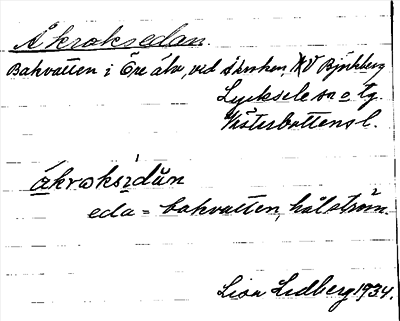 Åkroksedan.
Bakvatten i Öre älv, vid Åkroken, NV Björkberg
Lycksele sn o tg.
Västerbottens l.
åkrωksidŭn
eda = bakvatten, hålström.
Lisa Lidberg 1934.